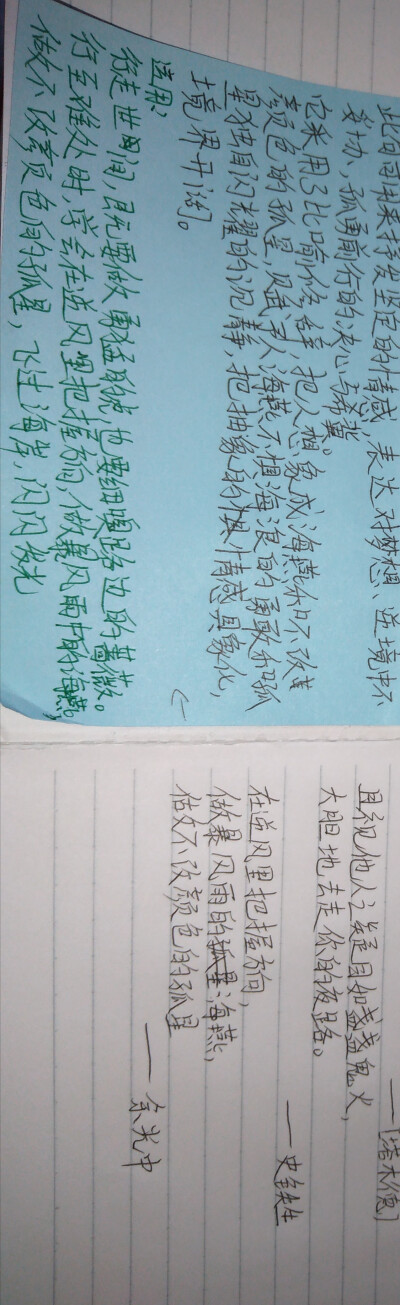 此句可用来抒发坚定的情感，表达对梦想、逆境中不
身切，孤勇前行的决心与希冀。
它采用了比喻修辞，把人想象成海燕和不改其
颜色的孤星，赋予人海燕不惧海浪的勇敢和孤
星独自闪耀的沉静，把抽象的情感具象化，
境界开阔。
运用：
行走世间，且先要做勇猛的虎，也要细嗅路边的蔷薇。
行至难处时，学会在逆风里把握方向，做暴风雨中的海燕，
做不改颜色的孤星，飞过海岸，闪闪发光
——[塔木德]
且视他人之疑目如盏盏鬼火，
大胆地去走你的夜路。
——史铁生
在逆风里把握方向，
做暴风雨的海燕，
做不改颜色的孤星
——余光中